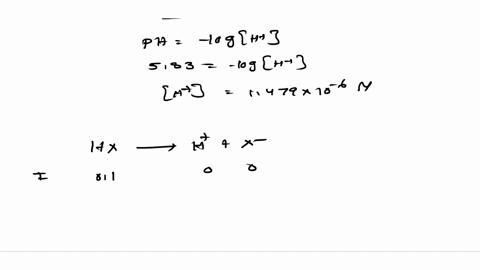 pH = -log[H+]
5.83 = -log[H+]
[H+] = 1.479 × 10⁻⁶ M
HX ⟶ H⁺ + X⁻
I 0.1 0 0